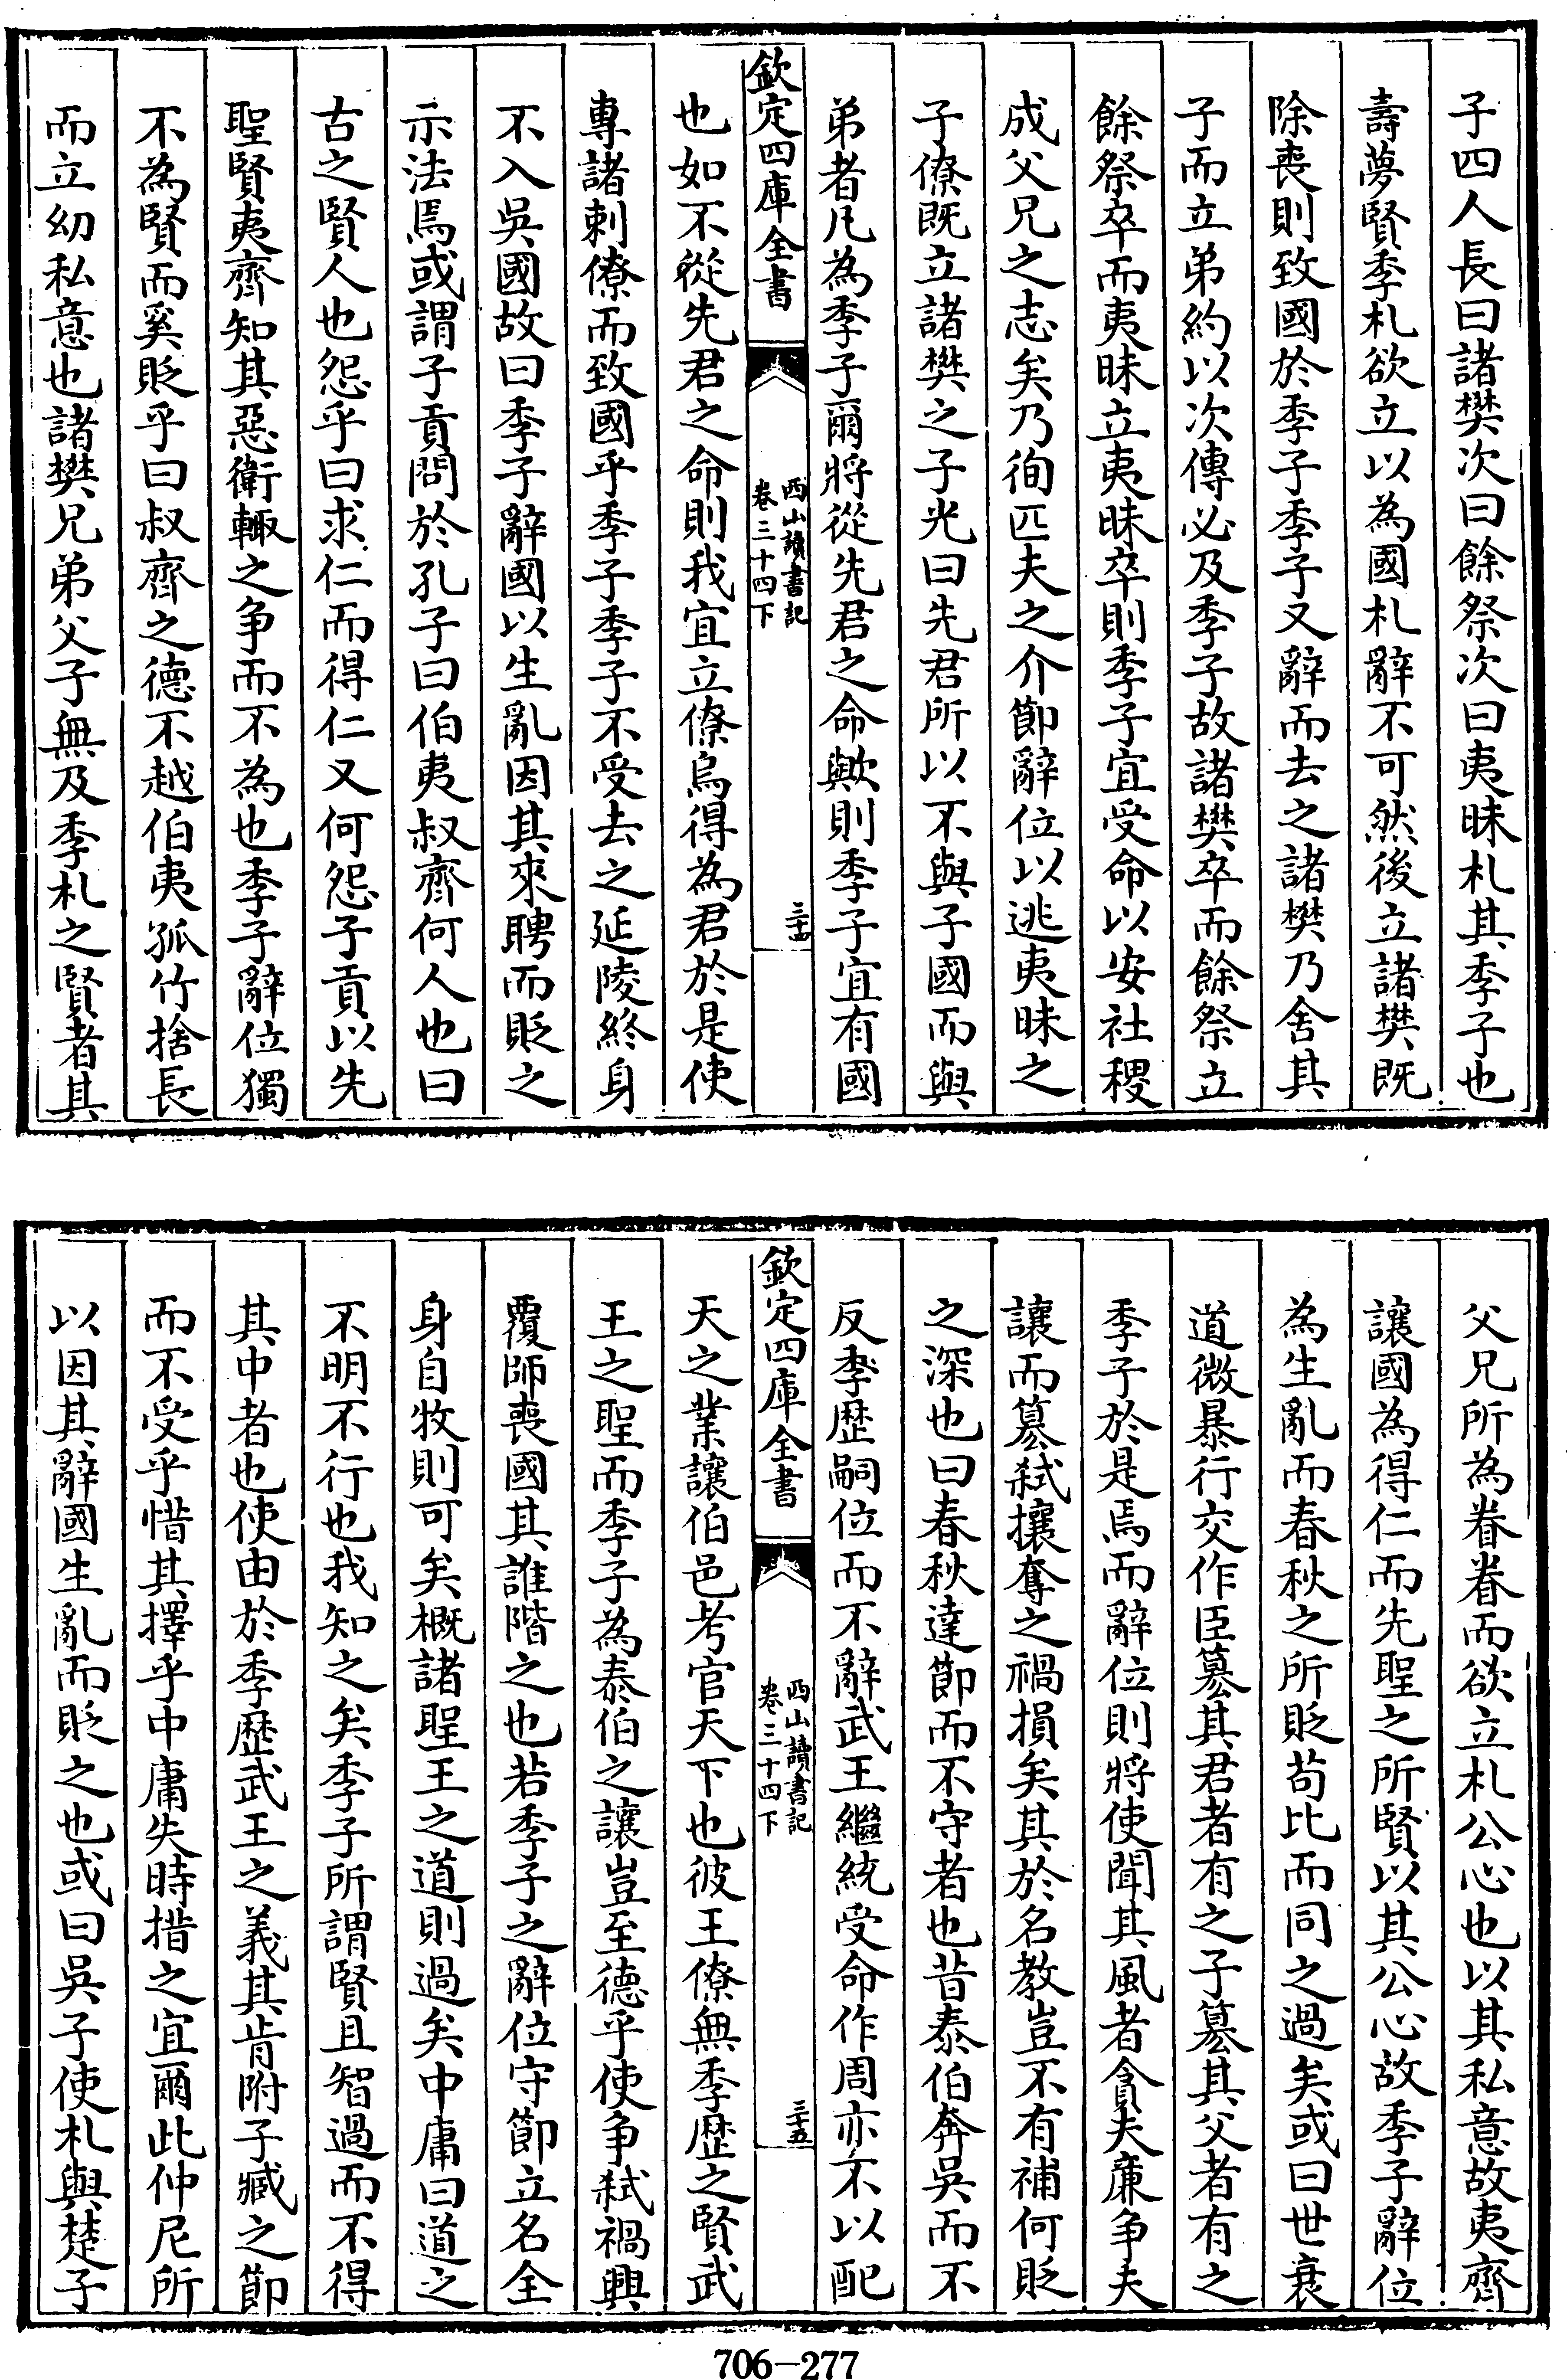 子四人長曰諸樊次曰餘祭次曰夷昧札其季子也
壽夢賢季札欲立以為國札辭不可然後立諸樊既
除喪則致國於季子季子又辭而去之諸樊乃舍其
子而立弟約以次傳必及季子故諸樊卒而餘祭立
餘祭卒而夷昧立夷昧卒則季子宜受命以安社稷
成父兄之志矣乃徇匹夫之介節辭位以逃夷昧之
子僚既立諸樊之子光曰先君所以不與子國而與
弟者凡為季子爾將從先君之命歟則季子宜有國
欽定四庫全書
西山讀書記
卷三十四下
三十四
也如不從先君之命則我宜立僚烏得為君於是使
專諸刺僚而致國乎季子季子不受去之延陵終身
不入吳國故曰季子辭國以生亂因其來聘而貶之
示法焉或謂子貢問於孔子曰伯夷叔齊何人也曰
古之賢人也怨乎曰求仁而得仁又何怨子貢以先
聖賢夷齊知其惡衛輒之争而不為也季子辭位獨
不為賢而奚貶乎曰叔齊之德不越伯夷孤竹捨長
而立幼私意也諸樊兄弟父子無及季札之賢者其
父兄所為眷眷而欲立札公心也以其私意故夷齊
讓國為得仁而先聖之所賢以其公心故季子辭位
為生亂而春秋之所貶苟比而同之過矣或曰世衰
道微暴行交作臣篡其君者有之子篡其父者有之
季子於是焉而辭位則將使聞其風者貪夫廉争夫
讓而篡弒攘奪之禍損矣其於名教豈不有補何貶
之深也曰春秋達節而不守者也昔泰伯奔吳而不
反季歷嗣位而不辭武王繼統受命作周亦不以配
欽定四庫全書
西山讀書記
卷三十四下
三十五
天之業讓伯邑考官天下也彼王僚無季歷之賢武
王之聖而季子為泰伯之讓豈至德乎使争弒禍興
覆師喪國其誰階之也若季子之辭位守節立名全
身自牧則可矣概諸聖王之道則過矣中庸曰道之
不明不行也我知之矣季子所謂賢且智過而不得
其中者也使由於季歷武王之義其肯附子臧之節
而不受乎惜其擇乎中庸失時措之宜爾此仲尼所
以因其辭國生亂而貶之也或曰吳子使札與楚子
706-277